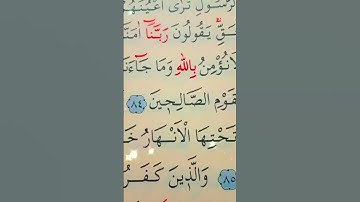 الرَّسُولِ تَرٰٓى اَعْيُنَهُمْ
يَقُولُونَ رَبَّنَٓا اٰمَنَّا
لَا نُؤْمِنُ بِاللّٰهِ وَمَا جَٓاءَنَا
الْقَوْمِ الصَّالِحٖينَ ﴿٨٤﴾
تَحْتِهَا الْاَنْهَارُ
﴿٨٥﴾ وَالَّذٖينَ كَفَرُوا